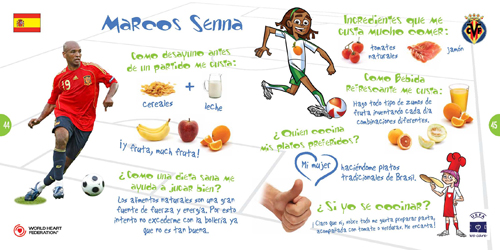 Marcos Senna
Como desayuno antes
de un partido me gusta:
cereales
+
leche
¡y fruta, mucha fruta!
¿Como una dieta sana me
ayuda a jugar bien?
Los alimentos naturales son una gran
fuente de fuerza y energía. Por esto
intento no excederme con la bollería ya
que no es tan buena.
44
WORLD HEART
FEDERATION
19
Ingredientes que me
gusta mucho comer:
tomates
naturales
jamón
Como bebida
refrescante me gusta:
Hago todo tipo de zumos de
fruta inventando cada día
combinaciones diferentes.
¿Quien cocina
mis platos preferidos?
Mi mujer
haciéndome platos
tradicionales de Brasil.
¿Si yo se cocinar?
Claro que sí, sobre todo me gusta preparar pasta,
acompañada con tomate o verduras. Me encanta!
45
UEFA